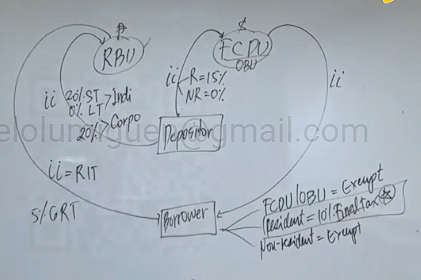 ₱
RBU
$
FCDU
OBU
ii
20% ST
0% LT > Indi
20% > Corpo
ii
R=15%
NR=0%
ii
Depositor
elolu gmail.com
ii = RIT
5% GRT
Borrower
FCDU/OBU = Exempt
Resident = 10% Final tax
Non-resident = Exempt